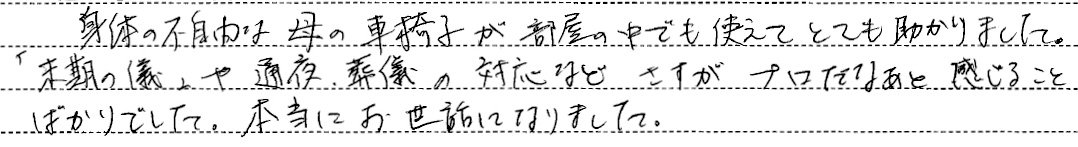 身体の不自由な母の車椅子が部屋の中でも使えてとても助かりました。
「末期の儀」や通夜、葬儀の対応などさすがプロだなあと感じること
ばかりでした。本当にお世話になりました。